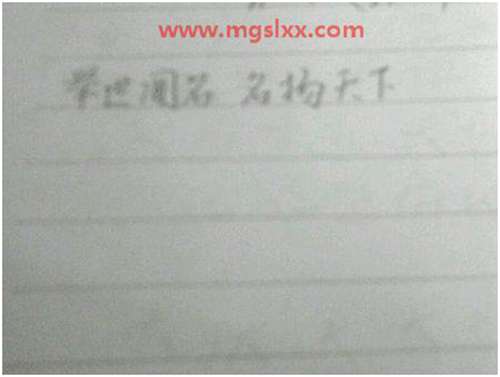 www.mgslxx.com
举世闻名 名扬天下